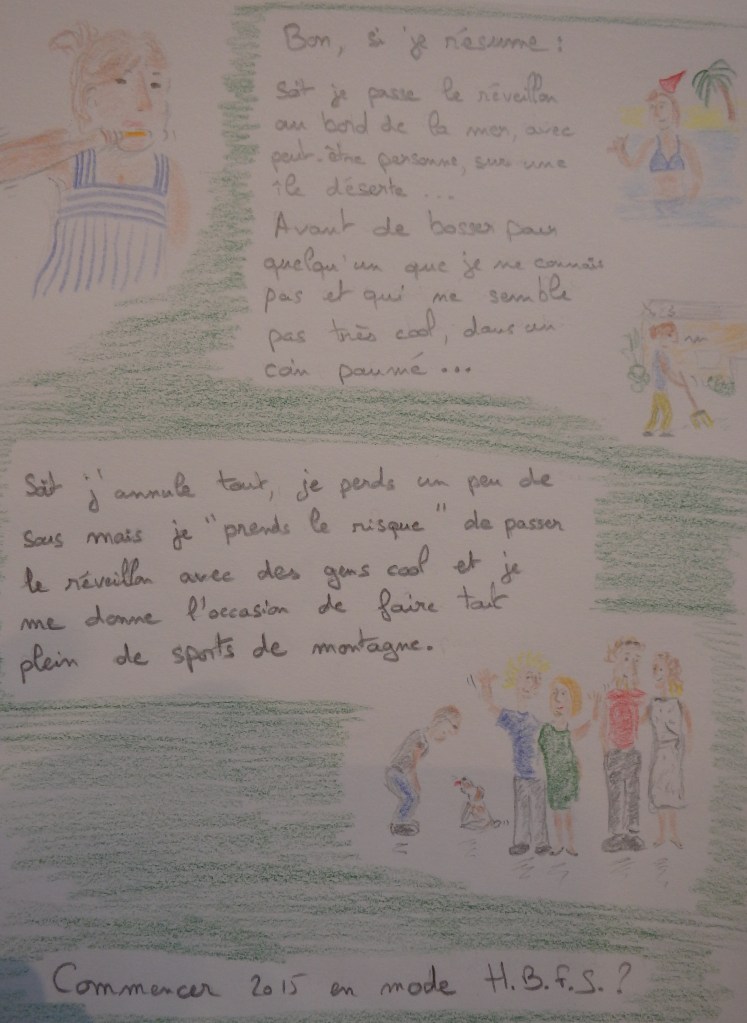 Bon, si je résume :
Soit je passe le réveillon
au bord de la mer, avec
peut-être personne, sur une
île déserte ...
Avant de bosser pour
quelqu'un que je ne connais
pas et qui me semble
pas très cool, dans un
coin paumé ...
Soit j'annule tout, je perds un peu de
sous mais je "prends le risque" de passer
le réveillon avec des gens cool et je
me donne l'occasion de faire tout
plein de sports de montagne.
Commencer 2015 en mode H.B.F.S. ?